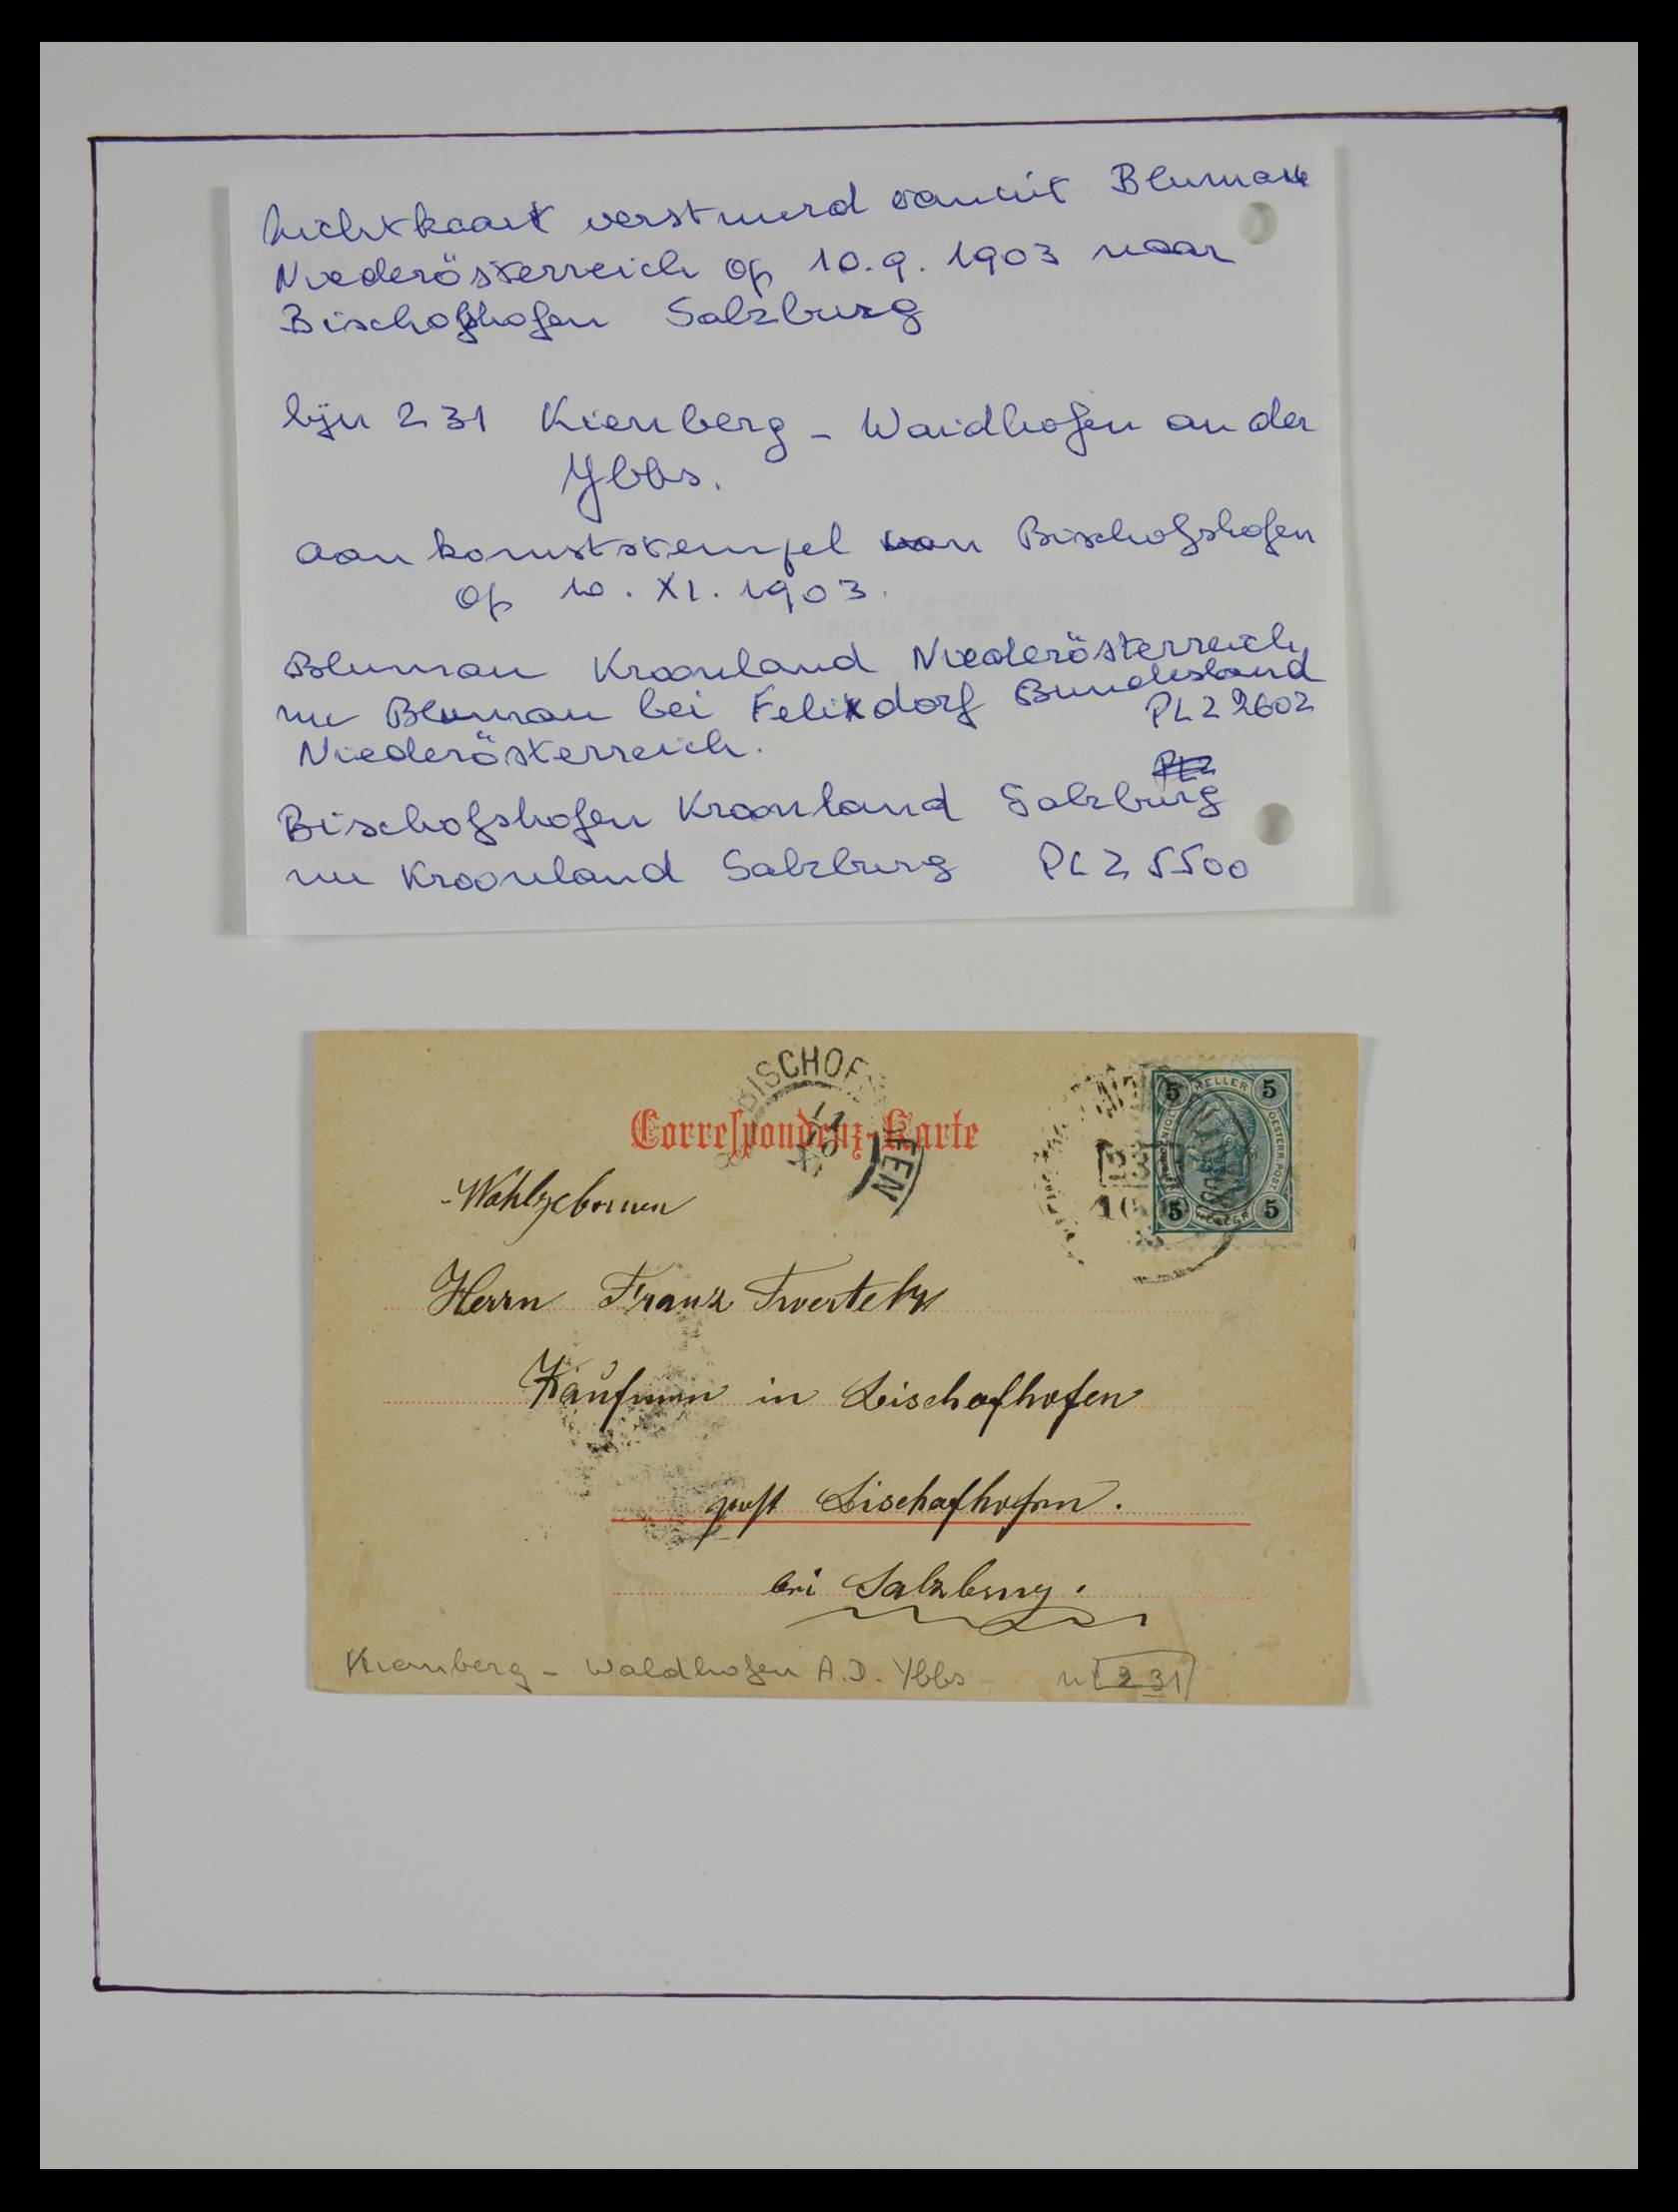 lichtkaart verstuurd vanuit Blumau
Niederösterreich op 10.9.1903 naar
Bischofshofen Salzburg
lijn 231 Kienberg - Waidhofen an der
Ybbs.
aankomststempel van Bischofshofen
op 10.XI.1903.
Blumau Kroonland Niederösterreich
nu Blumau bei Felixdorf Bundesland
PLZ 2602
Niederösterreich.
PLZ
Bischofshofen Kroonland Salzburg
nu Kroonland Salzburg PLZ 5500
BISCHOF FEN
11
XI
5 HELLER 5
OESTERR. POST.
5 HELLER 5
231
10
Correspondenz-Karte
-Wohlgebornen
Herrn Franz
Kaufmann in Bischofhofen
post Bischofhofen.
bei Salzburg.
Kienberg - Waldhofen A.D. Ybbs - n 231